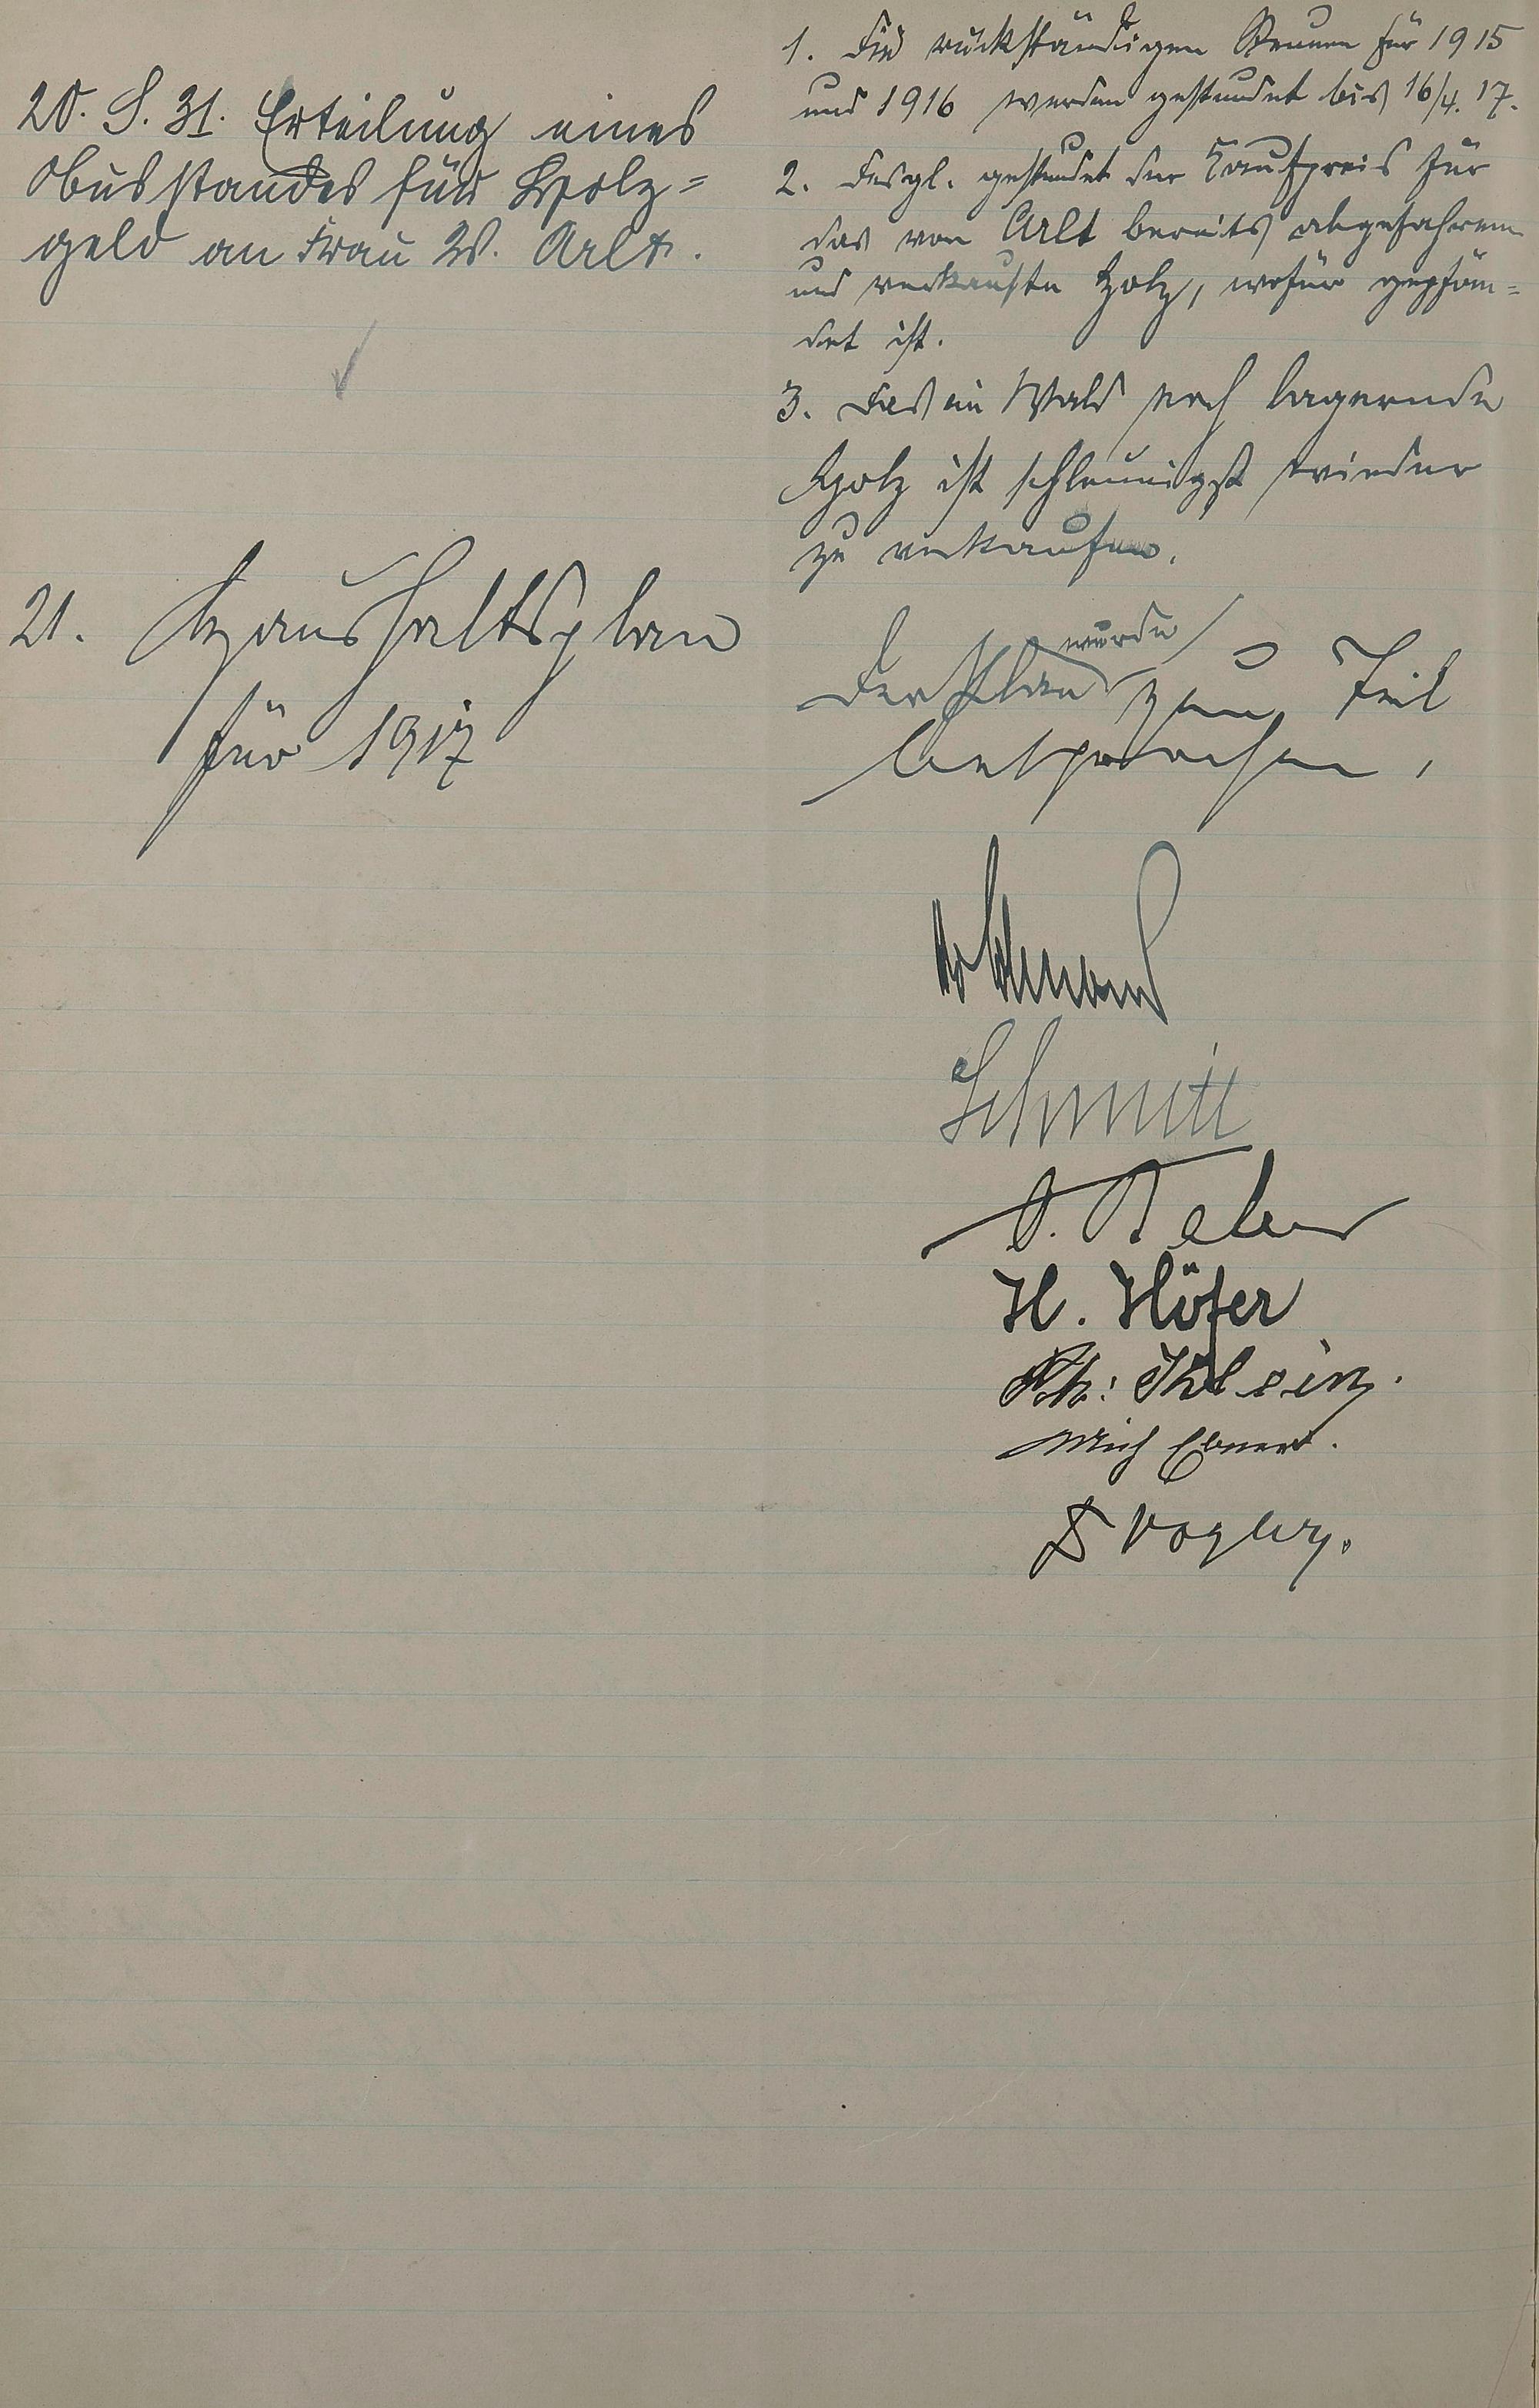 20. S. 31. Erteilung eines
Ausstandes für Holz=
geld an Frau W. Arlt.
1. Die rückständigen Steuern für 1915
und 1916 werden gestundet bis 16/4. 17.
2. Desgl. gestundet der Kaufpreis für
das von Arlt bereits abgefahrene
und verkaufte Holz, wofür gepfän=
det ist.
3. Das im Wald noch lagernde
Holz ist schleunigst wieder
zu verkaufen.
21. Haushaltsplan
für 1917
wurde
Der Plan zum Teil
besprochen.
Schmitt
H. Höfer
Ph: Klein.
Mich Ebnert.